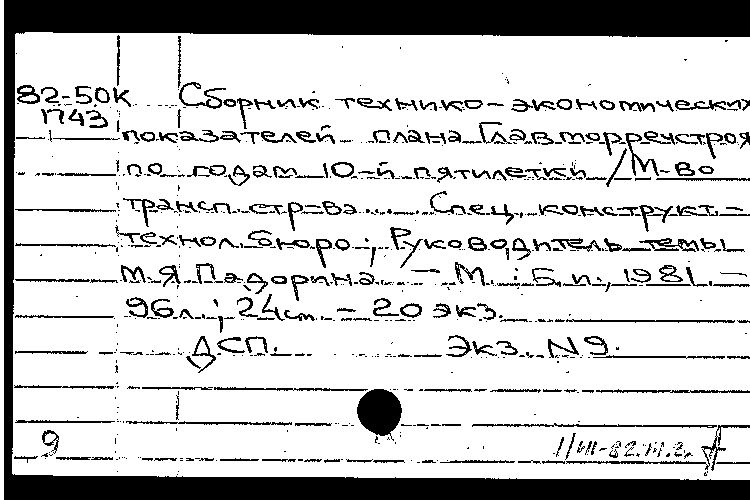 82-50К Сборник технико-экономических
П43 показателей плана Главморречстроя
по годам 10-й пятилетки / М-во
трансп. стр-ва... Спец. конструкт.-
технол. бюро; Руководитель темы
М.Я Падорина. - М. : Б.и., 1981. -
96л.; 24см. - 20 экз.
ДСП. Экз. N9.
9